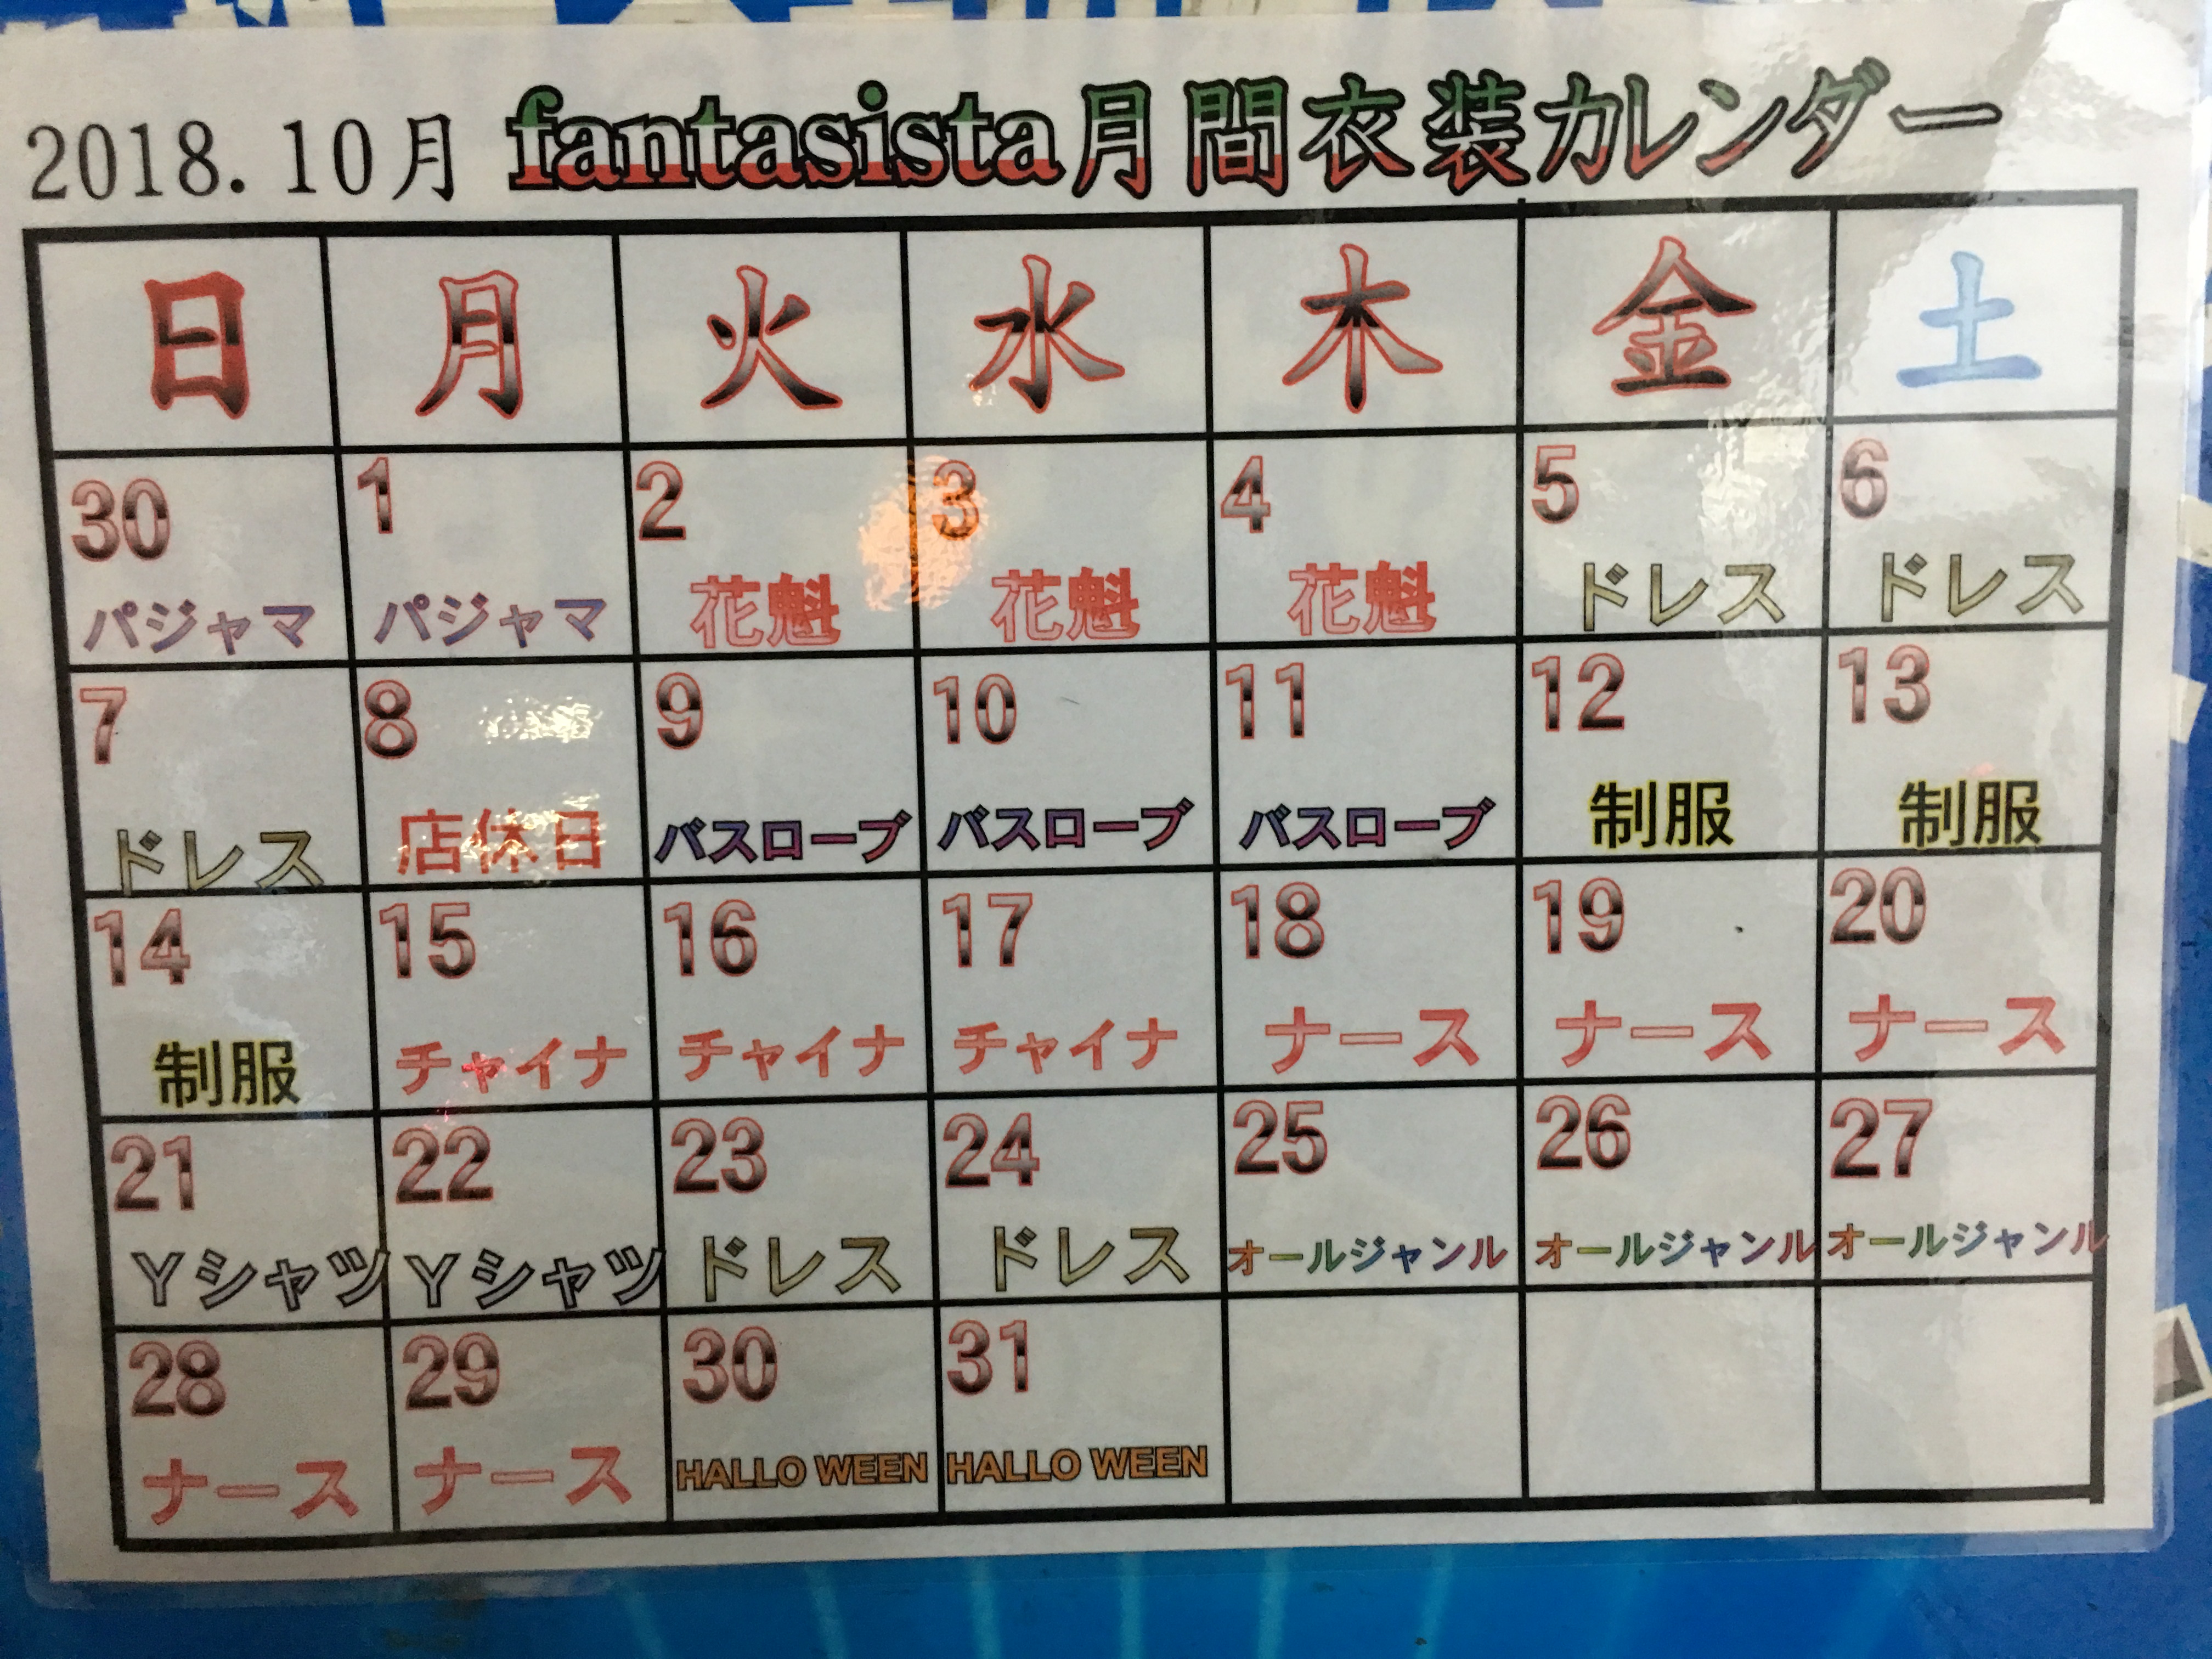 2018.10月 fantasista月間衣装カレンダー
日 月 火 水 木 金 土
30 1 2 3 4 5 6
パジャマ パジャマ 花魁 花魁 花魁 ドレス ドレス
7 8 9 10 11 12 13
ドレス 店休日 バスローブ バスローブ バスローブ 制服 制服
14 15 16 17 18 19 20
制服 チャイナ チャイナ チャイナ ナース ナース ナース
21 22 23 24 25 26 27
Yシャツ Yシャツ ドレス ドレス オールジャンル オールジャンル オールジャンル
28 29 30 31
ナース ナース HALLO WEEN HALLO WEEN